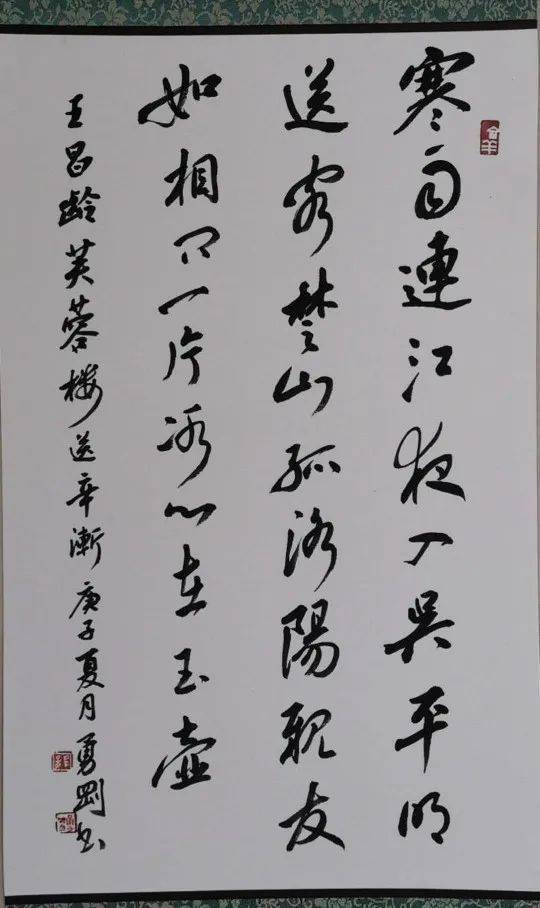 寒雨連江夜入吳平明
送客楚山孤洛陽親友
如相問一片冰心在玉壺
王昌齡芙蓉樓送辛漸 庚子夏月勇剛書